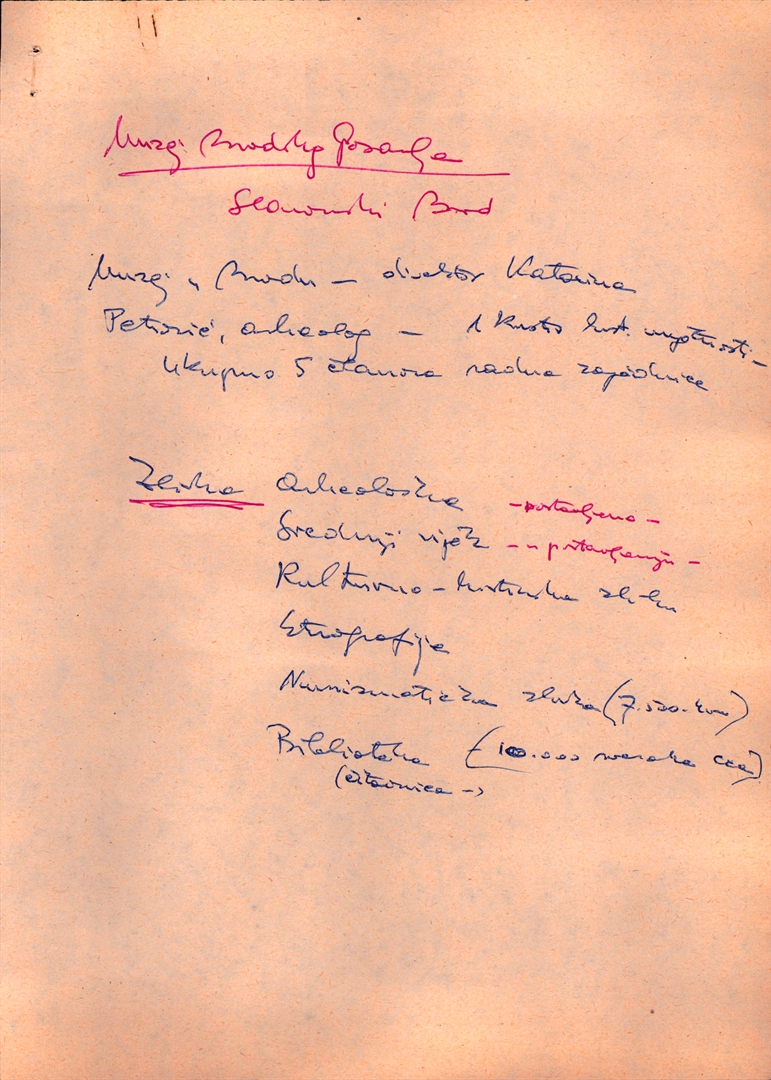 Muzej Brodskog Posavlja
Slavonski Brod
Muzej u Brodu – direktor Katarina
Petrović, arheolog – 1 Kustos hist. umjetnosti –
Ukupno 5 članova radne zajednice
Zbirka Arheološka – postavljeno –
Srednji vijek – u postavljanju –
Kulturno – historijska zbirka
Etnografija
Numizmatička zbirka (7.520. kom)
Biblioteka (10.000 svezaka
(čitaonica –)